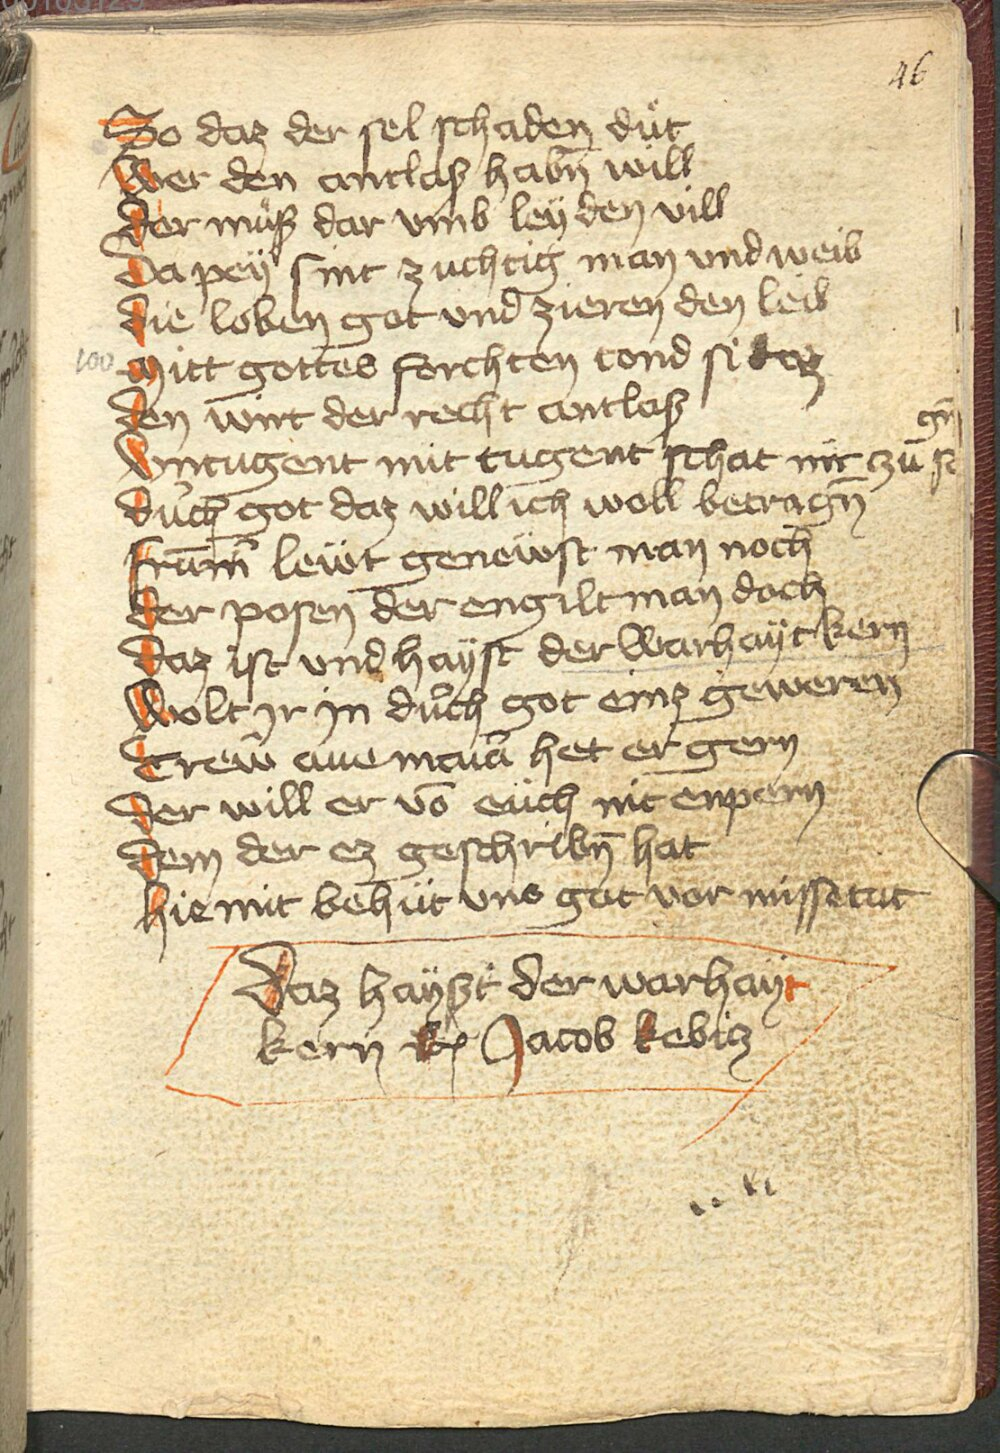 46
So daz der sel schaden důt
Wer den antlaß habn̄ will
der můß dar vmb leyden vill
Da peÿ sint zuchtig man vnd weib
die loben got vnd zieren den leib
100 Mitt gottes forchten tond si daz
den wirt der recht antlaß
Vntugent mit tugent schat nit zů
durch got daz will ich woll betragn̄
frūm̄ lewt genewst man noch
der posen der engilt man doch
daz ist vnd hayst der Warhaÿt kern
Wolt jr jn durch got einz geweren
Trew ave maria het er gern
Der will er vō eüch nit enpern
dem der ez geschribn̄ hat
hie mit behüt vns got vor missetat
Daz hayßt der warhaÿt
kern Jacob kebicz